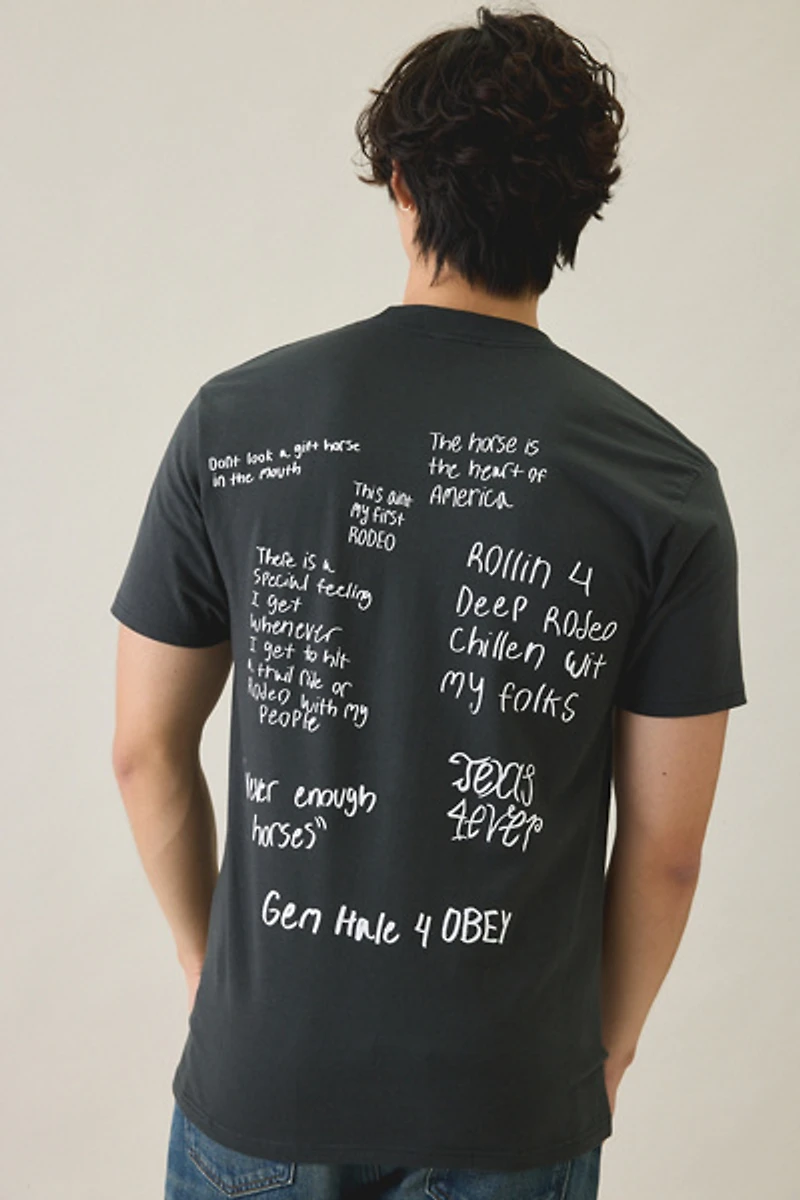 Dont look a gift horse
in the mouth
The horse is
the heart of
America
This aint
my first
RODEO
There is a
special feeling
I get
whenever
I get to hit
a trail ride or
Rodeo with my
PEOPle
Rollin 4
Deep Rodeo
Chillen wit
my folks
ever enough
horses"
Texas
4ever
Gem Hale 4 OBEY